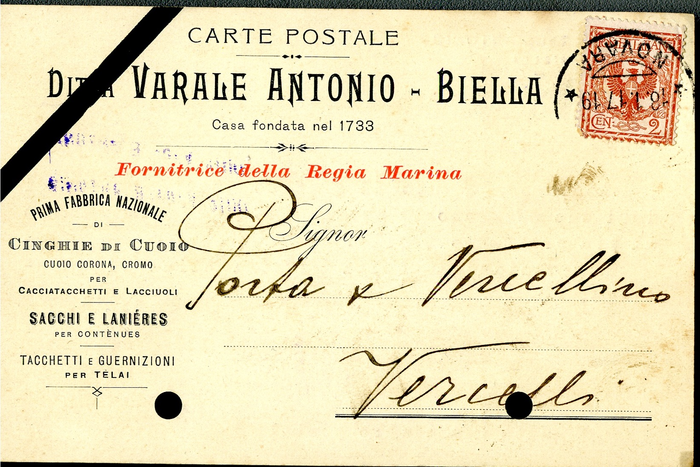 CARTE POSTALE
DITTA VARALE ANTONIO - BIELLA
Casa fondata nel 1733
Fornitrice della Regia Marina
PRIMA FABBRICA NAZIONALE
DI
CINGHIE DI CUOIO
CUOIO CORONA, CROMO
PER
CACCIATACCHETTI E LACCIUOLI
SACCHI E LANIÉRES
PER CONTÈNUES
TACCHETTI E GUERNIZIONI
PER TELAI
Signor
Porta & Vercellino
Vercelli
NOVARA
18.1.17 19
CEN. 2